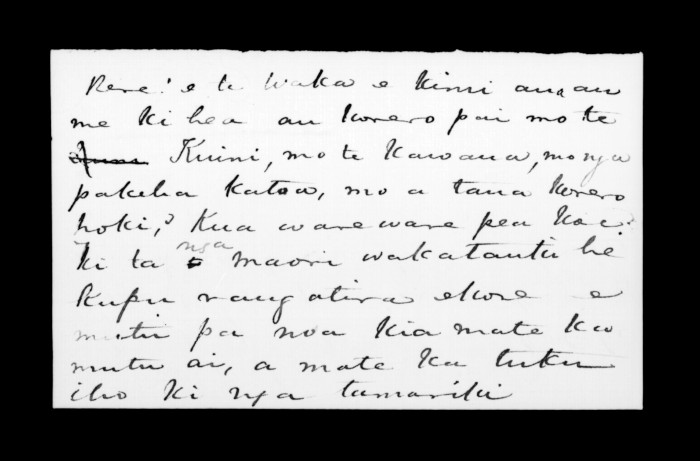 Rere! e te waka e kimi ana au
me ki hea au korero pai mo te
Kuini, mo te Kawana, mo nga
pakeha katoa, mo a tana korero
hoki,? Kua wareware pea koe?
ki ta nga maori wakatauki he
kupu rangatira ekore e
mutu pa noa kia mate ka
mutu ai, a mate ka tuku
iho ki nga tamariki